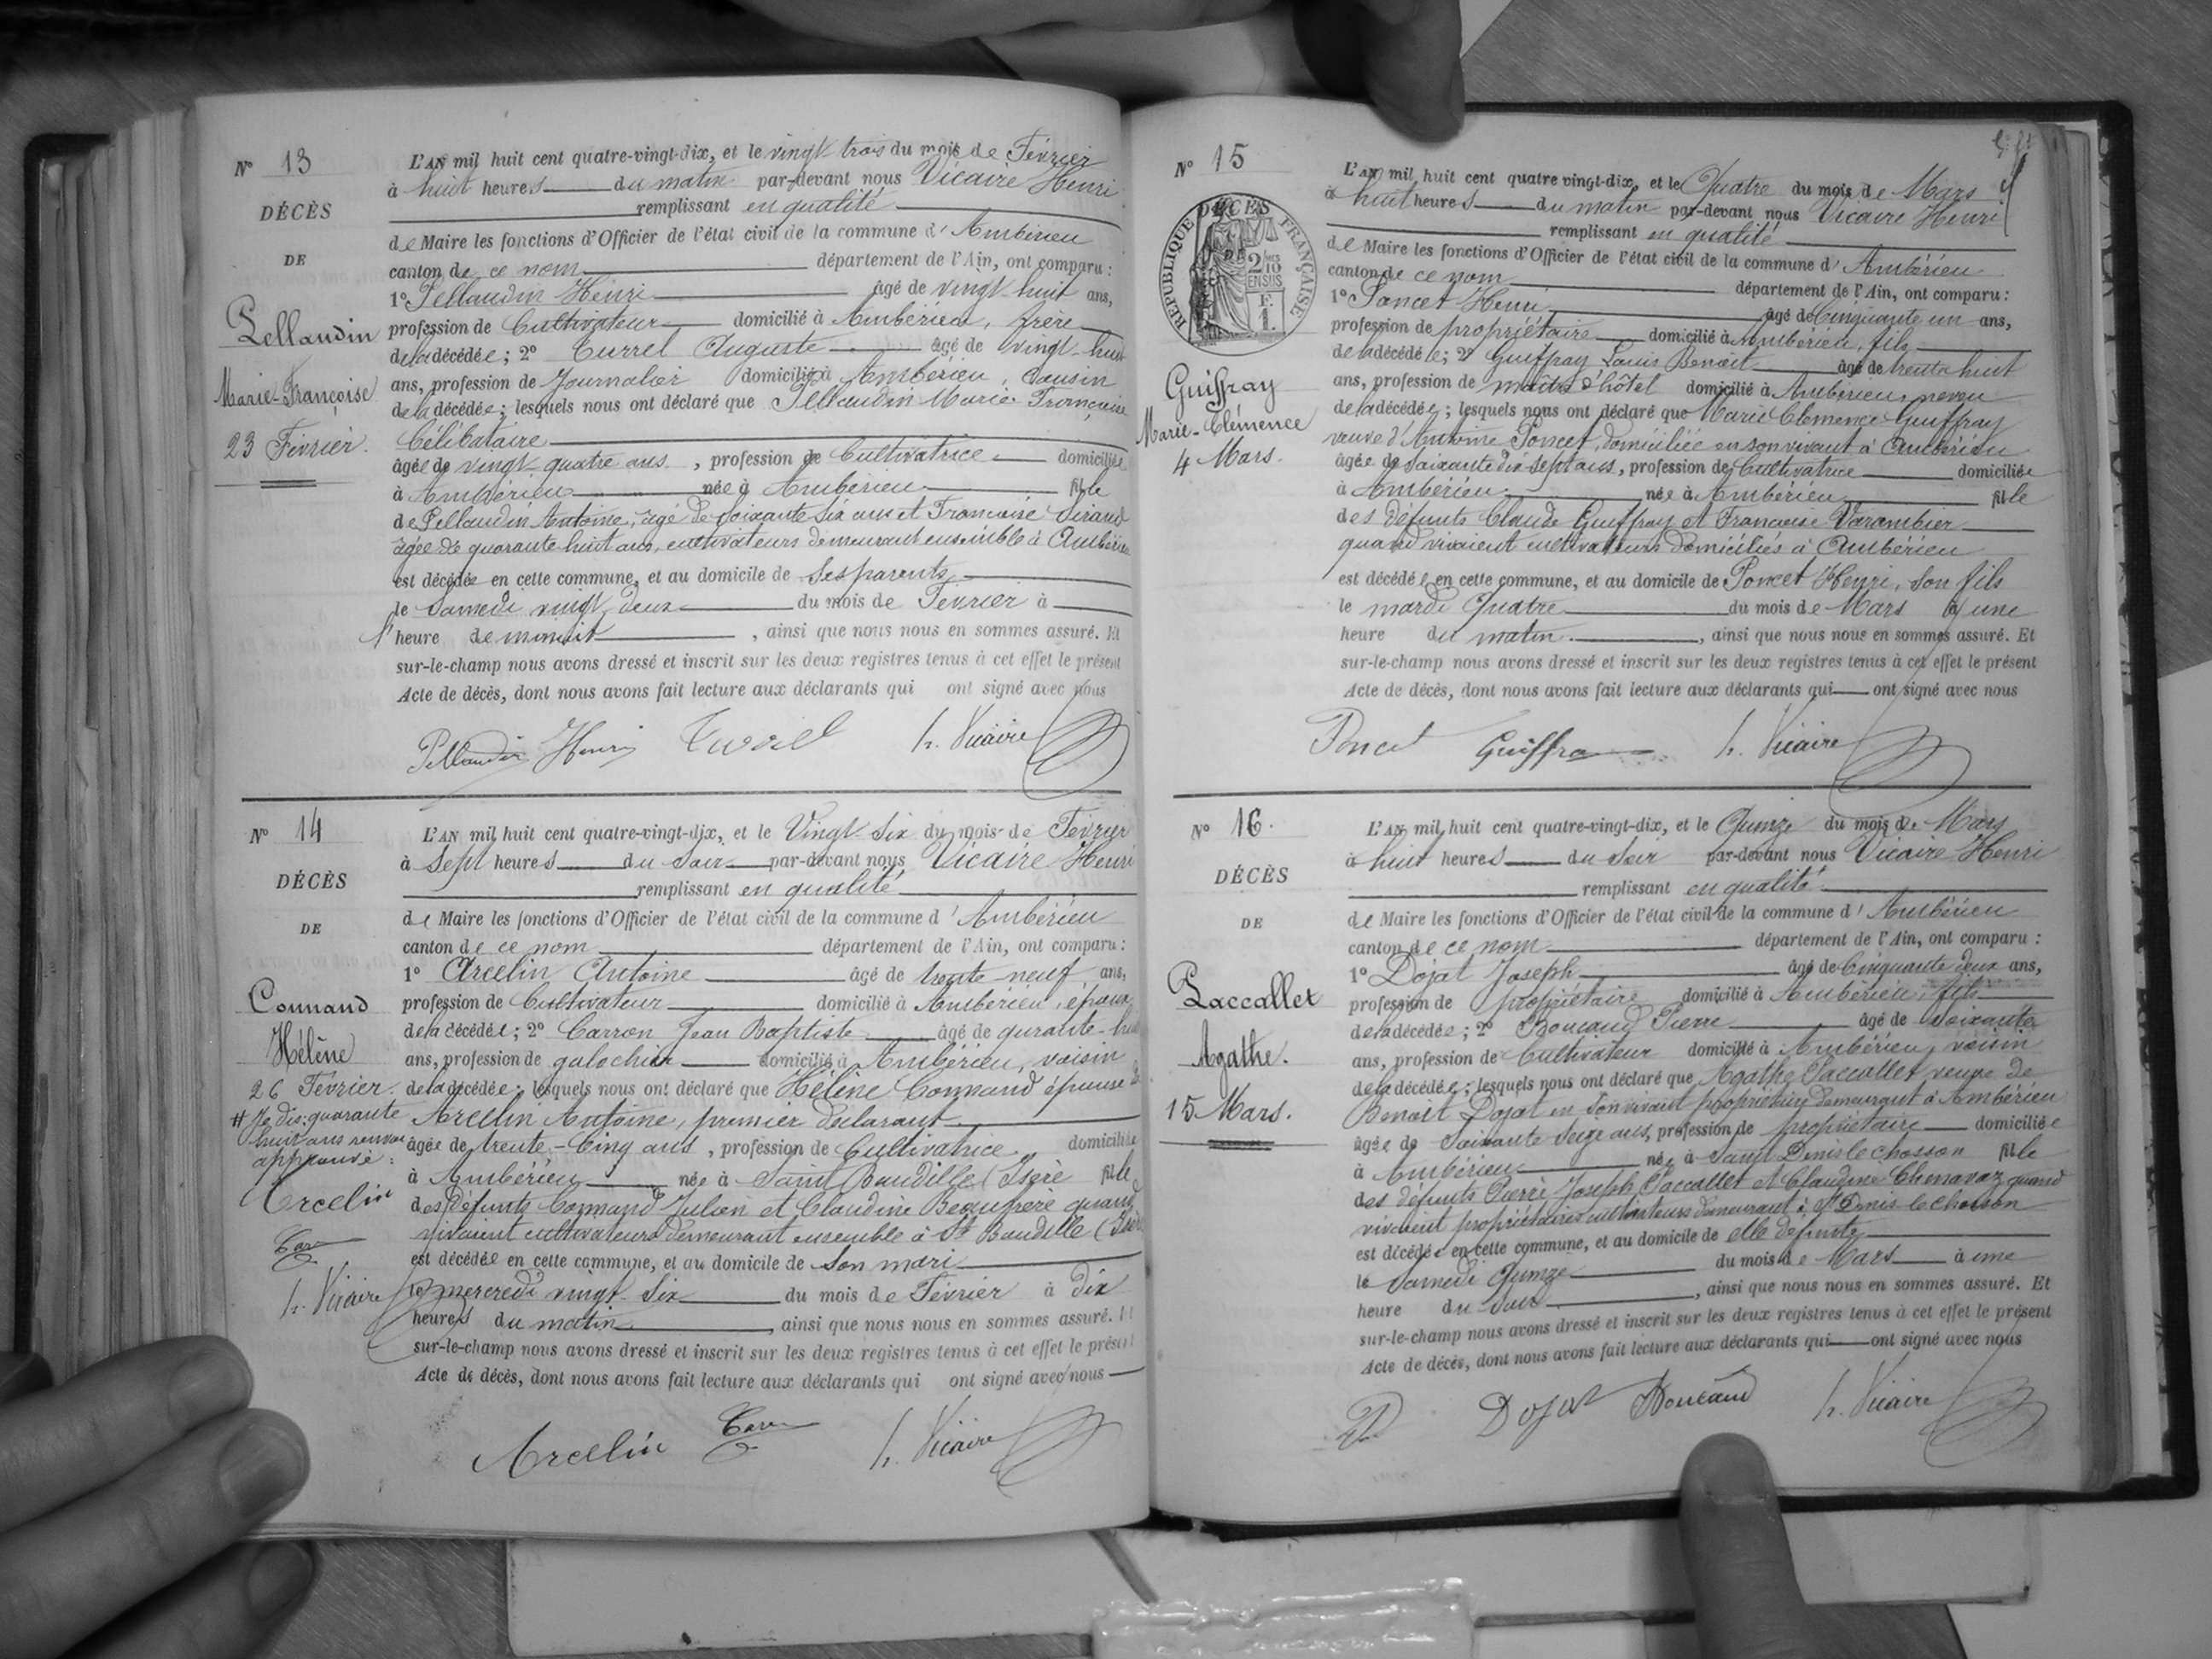 N° 13
DÉCÈS
DE
Pellaudin
Marie-Françoise
23 Février.
L'AN mil huit cent quatre-vingt-dix, et le vingt trois du mois de Février
à huit heures du matin par-devant nous Vicaire Henri
remplissant en qualité
de Maire les fonctions d'Officier de l'état civil de la commune d'Ambérieu
canton de ce nom département de l'Ain, ont comparu :
1° Pellaudin Henri âgé de vingt-huit ans,
profession de Cultivateur domicilié à Ambérieu, frère
de la décédée ; 2° Turrel Auguste âgé de vingt-huit
ans, profession de Journalier domicilié à Ambérieu, Cousin
de la décédée ; lesquels nous ont déclaré que Pellaudin Marie Françoise
Célibataire
âgée de vingt-quatre ans, profession de Cultivatrice domiciliée
à Ambérieu née à Ambérieu fille
de Pellaudin Antoine, âgé de soixante six ans et Françoise
âgée de quarante huit ans, cultivateurs demeurant ensemble à Ambérieu
est décédée en cette commune, et au domicile de ses parents
le Samedi vingt deux du mois de Février à
l'heure de minuit, ainsi que nous nous en sommes assuré. Et
sur-le-champ nous avons dressé et inscrit sur les deux registres tenus à cet effet le présent
Acte de décès, dont nous avons fait lecture aux déclarants qui ont signé avec nous
Pellaudin Henri Turrel h. Vicaire
N° 14
DÉCÈS
DE
Connand
Hélène
26 Février.
# Je dis: quarante
huit ans renvoi
approuvé:
Arcelin
Carr
h. Vicaire
L'AN mil huit cent quatre-vingt-dix, et le Vingt Six du mois de Février
à Sept heures du Soir par-devant nous Vicaire Henri
remplissant en qualité
de Maire les fonctions d'Officier de l'état civil de la commune d'Ambérieu
canton de ce nom département de l'Ain, ont comparu :
1° Arcelin Antoine âgé de trente neuf ans,
profession de Cultivateur domicilié à Ambérieu, époux
de la décédée ; 2° Carron Jean Baptiste âgé de qurante-huit
ans, profession de galochier domicilié à Ambérieu, voisin
de la décédée ; lesquels nous ont déclaré que Hélène Connand épouse de
Arcelin Antoine, premier déclarant
âgée de trente-Cinq ans, profession de Cultivatrice domiciliée
à Ambérieu née à Saint Baudille (Isère fille
des défunts Connand Julien et Claudine Beaupère quand
vivaient cultivateurs demeurant ensemble à St Baudille (Isère
est décédée en cette commune, et au domicile de son mari
le mercredi vingt-six du mois de Février à dix
heures du matin, ainsi que nous nous en sommes assuré. Et
sur-le-champ nous avons dressé et inscrit sur les deux registres tenus à cet effet le présent
Acte de décès, dont nous avons fait lecture aux déclarants qui ont signé avec nous
Arcelin Carr h. Vicaire
N° 15
RÉPUBLIQUE FRANÇAISE
2/10 EN SUS
F. 1.
DÉCÈS
DE
Guiffray
Marie-Clémence
4 Mars.
L'AN mil huit cent quatre vingt-dix, et le Quatre du mois de Mars
à huit heures du matin par-devant nous Vicaire Henri
remplissant en qualité
de Maire les fonctions d'Officier de l'état civil de la commune d'Ambérieu
canton de ce nom département de l'Ain, ont comparu :
1° Poncet Henri âgé de Cinquante un ans,
profession de propriétaire domicilié à Ambérieu, fils
de la décédée ; 2° Guiffray Louis Benoît âgé de trente huit
ans, profession de maître d'hôtel domicilié à Ambérieu, neveu
de la décédée ; lesquels nous ont déclaré que Marie Clémence Guiffray
veuve d'Antoine Poncet, domiciliée en son vivant à Ambérieu
âgée de Soixante dix sept ans, profession de Cultivatrice domiciliée
à Ambérieu née à Ambérieu fille
des défunts Claude Guiffray et Françoise Varambier
quand vivaient cultivateurs domiciliés à Ambérieu
est décédée en cette commune, et au domicile de Poncet Henri, son fils
le mardi Quatre du mois de Mars à une
heure du matin, ainsi que nous nous en sommes assuré. Et
sur-le-champ nous avons dressé et inscrit sur les deux registres tenus à cet effet le présent
Acte de décès, dont nous avons fait lecture aux déclarants qui ont signé avec nous
Poncet Guiffra h. Vicaire
N° 16.
DÉCÈS
DE
Paccallet
Agathe.
15 Mars.
L'AN mil huit cent quatre-vingt-dix, et le Quinze du mois de Mars
à huit heures du Soir par-devant nous Vicaire Henri
remplissant en qualité
de Maire les fonctions d'Officier de l'état civil de la commune d'Ambérieu
canton de ce nom département de l'Ain, ont comparu :
1° Dojat Joseph âgé de Cinquante deux ans,
profession de propriétaire domicilié à Ambérieu, fils
de la décédée ; 2° Boucaud Pierre âgé de Soixante
ans, profession de Cultivateur domicilié à Ambérieu, voisin
de la décédée ; lesquels nous ont déclaré que Agathe Paccallet veuve de
Benoit Dojat en son vivant propriétaire demeurant à Ambérieu
âgée de Soixante Seize ans, profession de propriétaire domiciliée
à Ambérieu née à Saint Denis le chosson fille
des défunts Pierre Joseph Paccallet et Claudine Chenavaz quand
vivaient propriétaires cultivateurs demeurant à St Denis le chosson
est décédée en cette commune, et au domicile de elle défunte
le Samedi Quinze du mois de Mars à une
heure du Soir, ainsi que nous nous en sommes assuré. Et
sur-le-champ nous avons dressé et inscrit sur les deux registres tenus à cet effet le présent
Acte de décès, dont nous avons fait lecture aux déclarants qui ont signé avec nous
Dojat Boucaud h. Vicaire